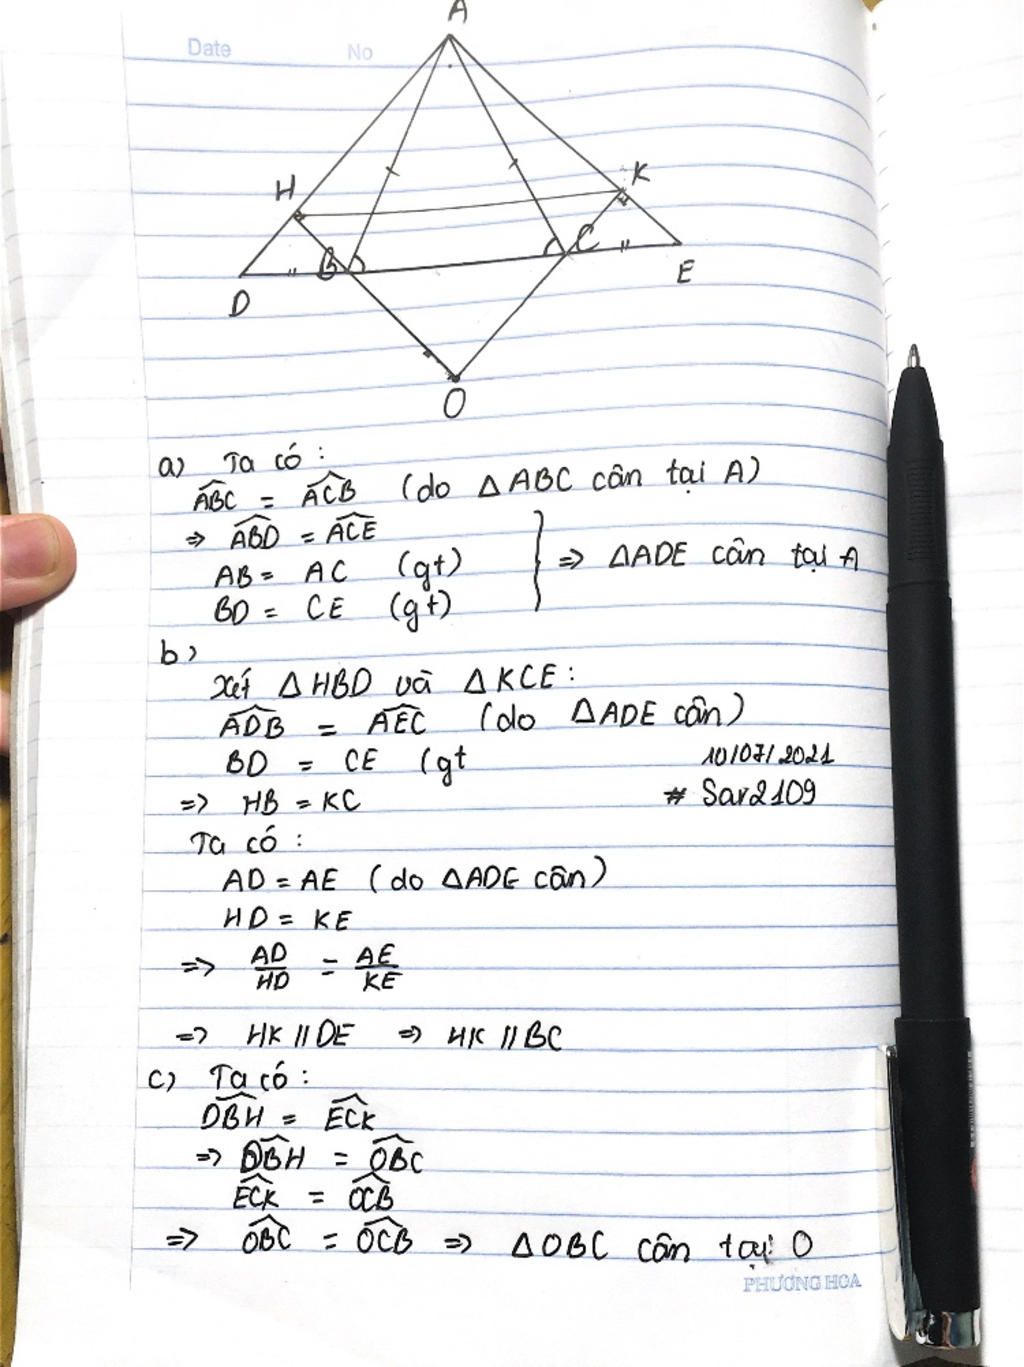 A
Date No
H K
B C
D E
O
a) Ta có :
\widehat{ABC} = \widehat{ACB} (do △ABC cân tại A)
=> \widehat{ABD} = \widehat{ACE}
AB = AC (gt) } => △ADE cân tại A
BD = CE (gt)
b)
Xét △HBD và △KCE :
\widehat{ADB} = \widehat{AEC} (do △ADE cân)
BD = CE (gt 10/07/2021
=> HB = KC # Sar2109
Ta có :
AD = AE (do △ADE cân)
HD = KE
=> AD/HD = AE/KE
=> HK // DE => HK // BC
c) Ta có :
\widehat{DBH} = \widehat{ECK}
=> \widehat{DBH} = \widehat{OBC}
\widehat{ECK} = \widehat{OCB}
=> \widehat{OBC} = \widehat{OCB} => △OBC cân tại O
PHƯƠNG HOA